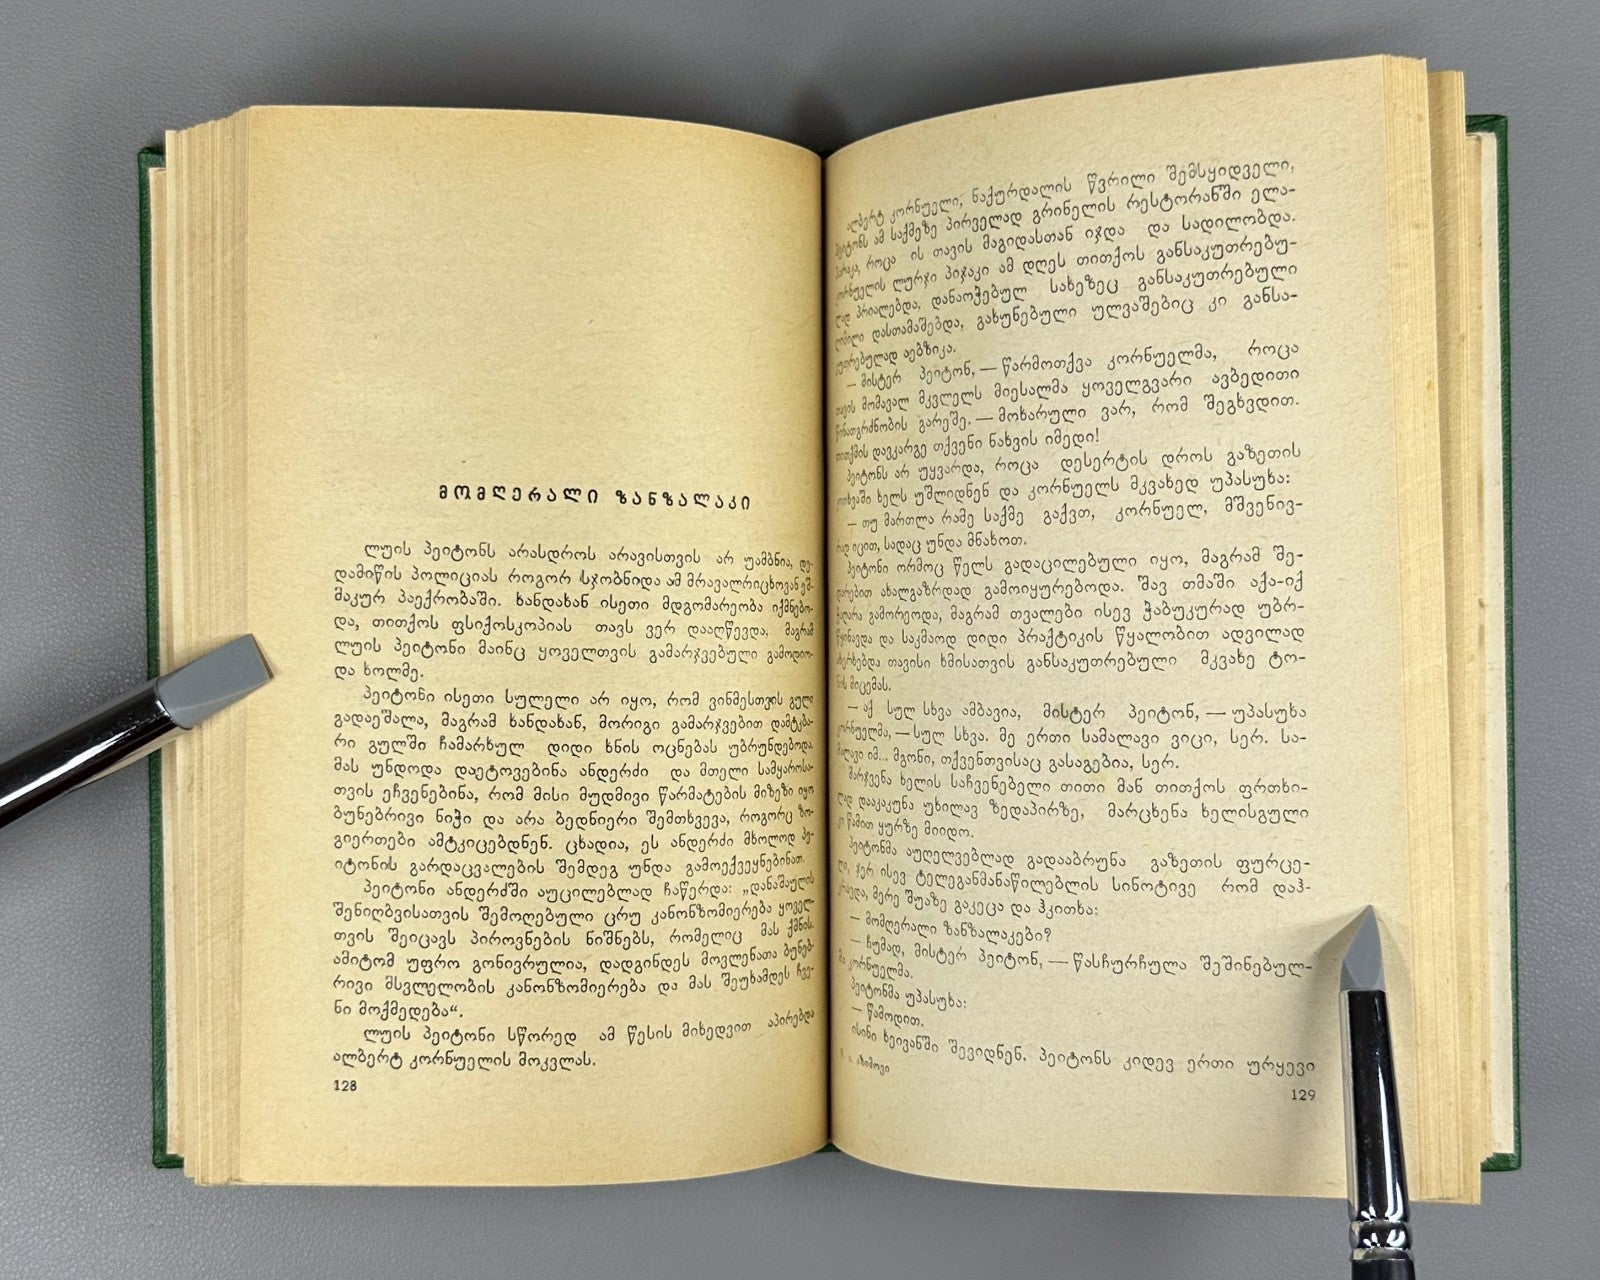 მომღერალი ზანზალაკი
ლუის პეიტონს არასდროს არავისთვის არ უამბნია, დე-
დამიწის პოლიციას როგორ სჯობნიდა ამ მრავალრიცხოვან ეშ-
მაკურ პაექრობაში. ხანდახან ისეთი მდგომარეობა იქმნებო-
და, თითქოს ფსიქოსკოპიას თავს ვერ დააღწევდა, მაგრამ
ლუის პეიტონი მაინც ყოველთვის გამარჯვებული გამოდიო-
და ხოლმე.
პეიტონი ისეთი სულელი არ იყო, რომ ვინმესთვის გული
გადაეშალა, მაგრამ ხანდახან, მორიგი გამარჯვებით დამტკბა-
რი გულში ჩამარხულ დიდი ხნის ოცნებას უბრუნდებოდა.
მას უნდოდა დაეტოვებინა ანდერძი და მთელი სამყაროსა-
თვის ეჩვენებინა, რომ მისი მუდმივი წარმატების მიზეზი იყო
ბუნებრივი ნიჭი და არა ბედნიერი შემთხვევა, როგორც ზო-
გიერთები ამტკიცებდნენ. ცხადია, ეს ანდერძი მხოლოდ პე-
იტონის გარდაცვალების შემდეგ უნდა გამოექვეყნებინათ.
პეიტონი ანდერძში აუცილებლად ჩაწერდა: „დანაშაულის
შენიღბვისათვის შემოღებული ცრუ კანონზომიერება ყოველ-
თვის შეიცავს პიროვნების ნიშნებს, რომელიც მას ქმნის.
ამიტომ უფრო გონივრულია, დადგინდეს მოვლენათა ბუნებ-
რივი მსვლელობის კანონზომიერება და მას შეუხამდეს ჩვე-
ნი მოქმედება“.
ლუის პეიტონი სწორედ ამ წესის მიხედვით აპირებდა
ალბერტ კორნუელის მოკვლას.
128
ალბერტ კორნუელი, ნაქურდალის წვრილი შემსყიდველი,
პეიტონს ამ საქმეზე პირველად გრინელის რესტორანში ელა-
პარაკა, როცა ის თავის მაგიდასთან იჯდა და სადილობდა.
კორნუელის ლურჯი პიჯაკი ამ დღეს თითქოს განსაკუთრებუ-
ლად პრიალებდა, დანაოჭებულ სახეზეც განსაკუთრებული
ღიმილი დასთამაშებდა, გახუნებული ულვაშებიც კი განსა-
კუთრებულად აებზიკა.
— მისტერ პეიტონ, — წარმოთქვა კორნუელმა, როცა
თავის მომავალ მკვლელს მიესალმა ყოველგვარი ავბედითი
წინათგრძნობის გარეშე. — მოხარული ვარ, რომ შეგხვდით.
თითქმის დავკარგე თქვენი ნახვის იმედი!
პეიტონს არ უყვარდა, როცა დესერტის დროს გაზეთის
კითხვაში ხელს უშლიდნენ და კორნუელს მკვახედ უპასუხა:
— თუ მართლა რამე საქმე გაქვთ, კორნუელ, მშვენივ-
რად იცით, სადაც უნდა მნახოთ.
პეიტონი ორმოც წელს გადაცილებული იყო, მაგრამ შე-
დარებით ახალგაზრდად გამოიყურებოდა. შავ თმაში აქა-იქ
ჭაღარა გამორეოდა, მაგრამ თვალები ისევ ჭაბუკურად უბრ-
წყინავდა და საკმაოდ დიდი პრაქტიკის წყალობით ადვილად
ახერხებდა თავისი ხმისათვის განსაკუთრებული მკვახე ტო-
ნის მიცემას.
— აქ სულ სხვა ამბავია, მისტერ პეიტონ, — უპასუხა
კორნუელმა, — სულ სხვა. მე ერთი სამალავი ვიცი, სერ. სა-
მალავი იმ... მგონი, თქვენთვისაც გასაგებია, სერ.
მარჯვენა ხელის საჩვენებელი თითი მან თითქოს ფრთხი-
ლად დააკაკუნა უხილავ ზედაპირზე, მარცხენა ხელისგული
კი წამით ყურზე მიიდო.
პეიტონმა აუღელვებლად გადააბრუნა გაზეთის ფურცე-
ლი, ჯერ ისევ ტელეგანმანაწილებლის სინოტივე რომ დაჰ-
კრავდა, მერე შუაზე გაკეცა და ჰკითხა:
— მომღერალი ზანზალაკები?
— ჩუმად, მისტერ პეიტონ, — წასჩურჩულა შეშინებულ-
მა კორნუელმა.
პეიტონმა უპასუხა:
— წამოდით.
ისინი ხეივანში შევიდნენ. პეიტონს კიდევ ერთი ურყევი
ა. აზიმოვი
129